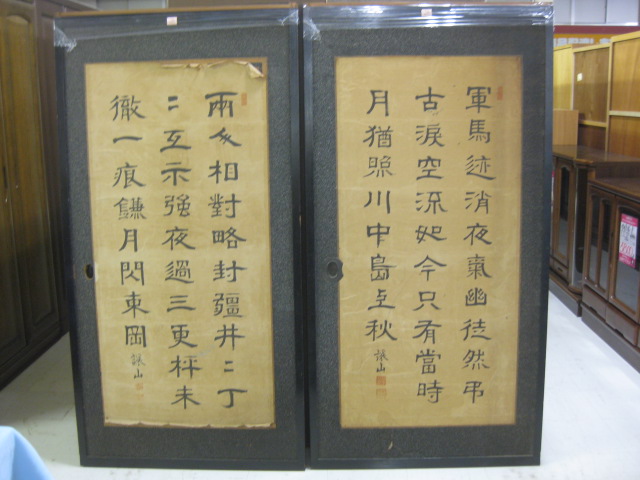 軍馬迹消夜氣幽徒然弔
古涙空流如今只有當時
月猶照川中島上秋
兩人相對略封疆井々丁
々互示強夜過三更枰未
徹一痕鎌月閃東岡